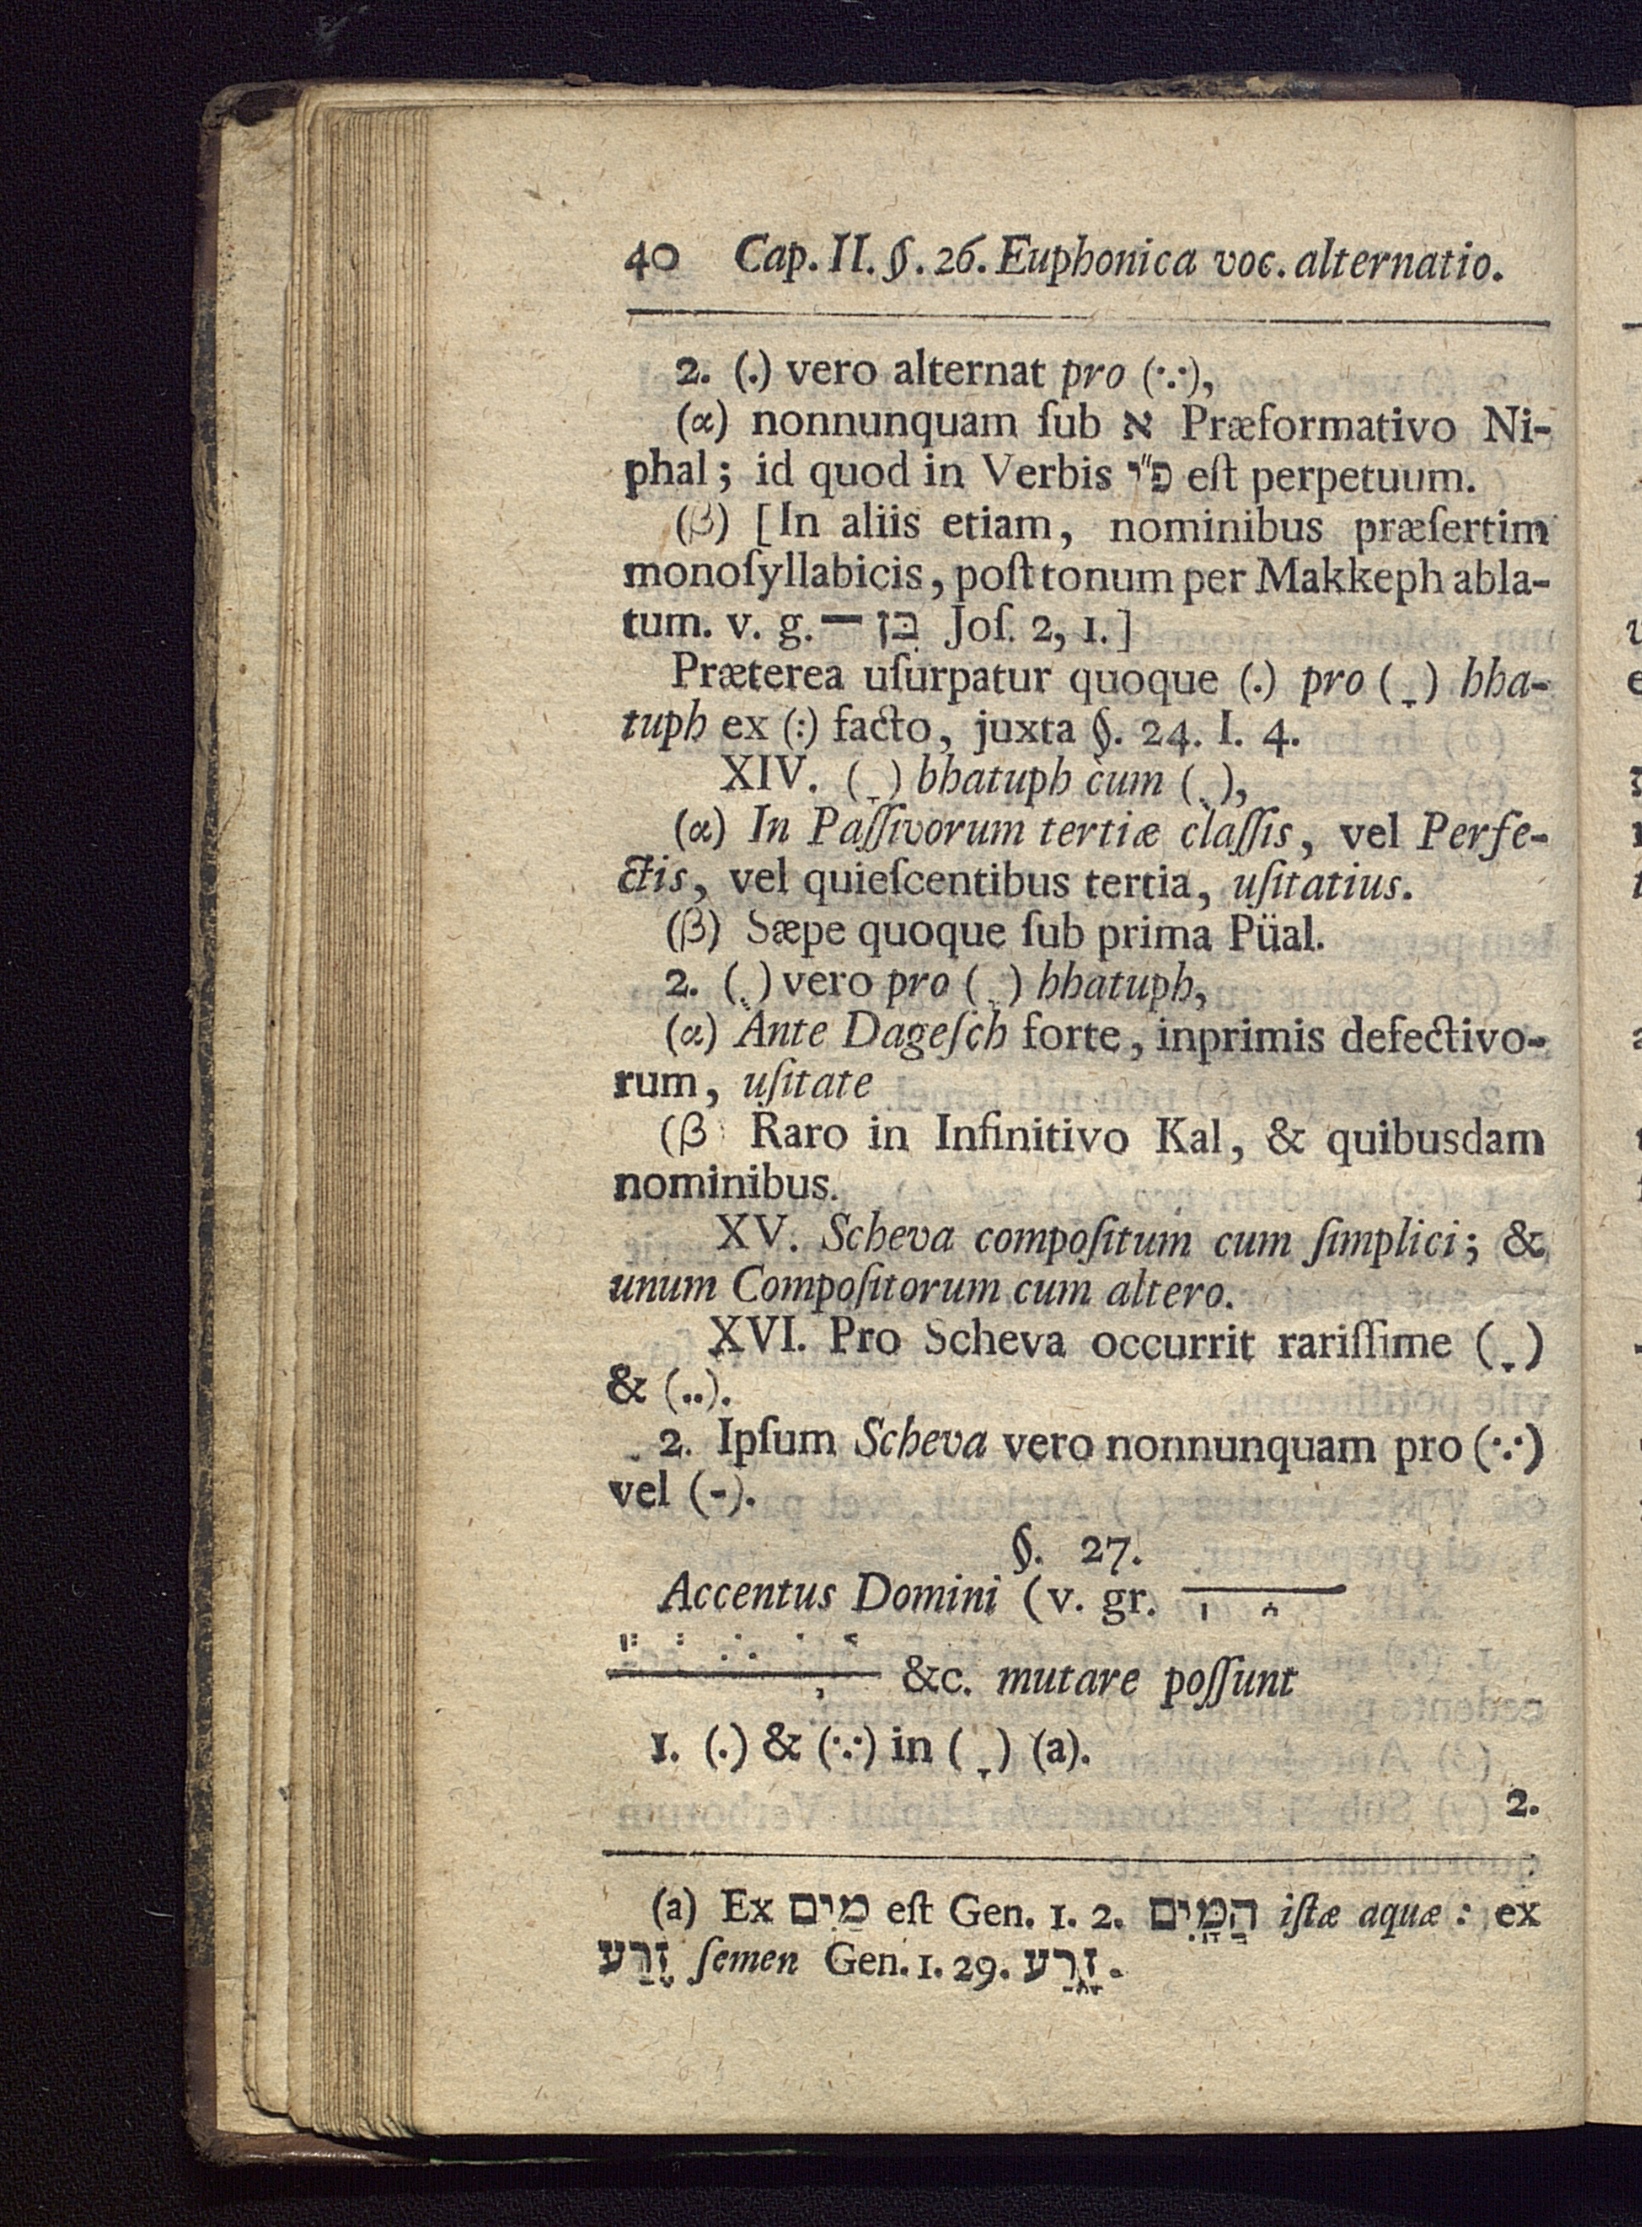 40 Cap. II. §. 26. Euphonica voc. alternatio.
2. (.) vero alternat pro (∵),
(α) nonnunquam ſub א Præformativo Ni-
phal; id quod in Verbis פ״י eſt perpetuum.
(β) [In aliis etiam, nominibus præſertim
monoſyllabicis, poſt tonum per Makkeph abla-
tum. v. g. בִּן־ Joſ. 2, 1.]
Præterea uſurpatur quoque (.) pro (ָ) hha-
tuph ex (:) facto, juxta §. 24. I. 4.
XIV. (ָ) hhatuph cum (ֻ),
(α) In Paſſivorum tertiæ claſſis, vel Perfe-
ctis, vel quieſcentibus tertia, uſitatius.
(β) Sæpe quoque ſub prima Püal.
2. (ֻ) vero pro (ָ) hhatuph,
(α) Ante Dageſch forte, inprimis defectivo-
rum, uſitate
(β Raro in Infinitivo Kal, & quibusdam
nominibus.
XV. Scheva compoſitum cum ſimplici; &
unum Compoſitorum cum altero.
XVI. Pro Scheva occurrit rariſſime (ָ)
& (..).
2. Ipſum Scheva vero nonnunquam pro (∵)
vel (-).
§. 27.
Accentus Domini (v. gr.
&c. mutare poſſunt
1. (.) & (∵) in (ָ) (a).
2.
(a) Ex מַיִם eſt Gen. 1. 2. הַמָּיִם iſtæ aquæ: ex
זֶרַע ſemen Gen. 1. 29. זָרַע.